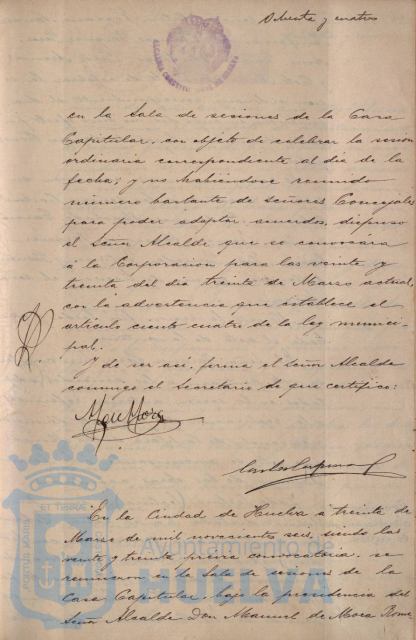 Ochenta y cuatro
en la Sala de sesiones de la Casa
Capitular, con objeto de celebrar la sesion
ordinaria correspondiente al dia de la
fecha; y no habiendose reunido
número bastante de Señores Concejales
para poder adoptar acuerdos, dispuso
el Señor Alcalde que se convocára
á la Corporacion para las veinte y
treinta del dia treinta de Marzo actual,
con la advertencia que establece el
artículo ciento cuatro de la ley munici-
pal.
Y de ser así, firma el Señor Alcalde
conmigo el Secretario de que certifico:
M. de Mora
En la Ciudad de Huelva á treinta de
Marzo de mil novecientos seis, siendo las
veinte y treinta previa convocatoria, se
reunieron en la Sala de sesiones de la
Casa Capitular, bajo la presidencia del
Señor Alcalde Don Manuel de Mora Rome
Ayuntamiento de
HUELVA